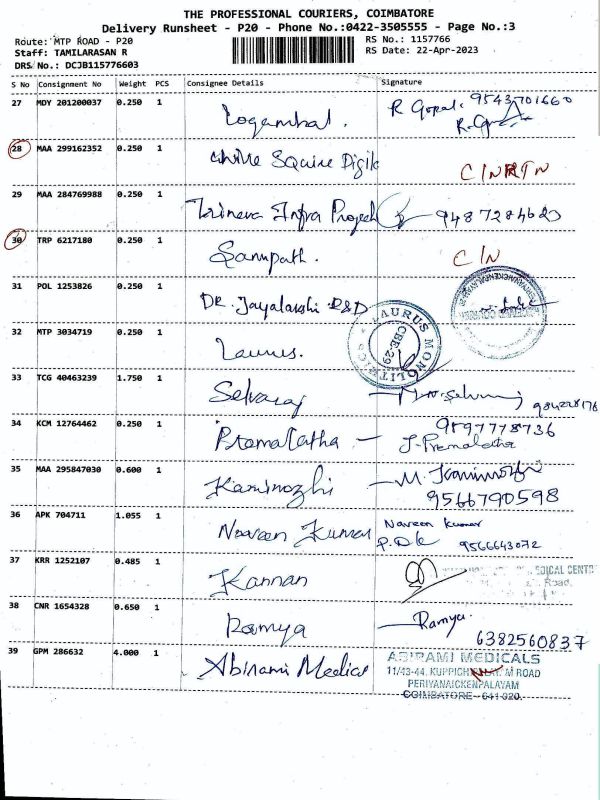 THE PROFESSIONAL COURIERS, COIMBATORE
Delivery Runsheet - P20 - Phone No.:0422-3505555 - Page No.:3
Route: MTP ROAD - P20
Staff: TAMILARASAN R
DRS No.: DCJB115776603
RS No.: 1157766
RS Date: 22-Apr-2023
S No Consignment No Weight PCS Consignee Details Signature
27 MDY 201200037 0.250 1 Logambal. R Gopal: 9543701660
28 MAA 299162352 0.250 1 White Square Digik C/N RTN
29 MAA 284769988 0.250 1 Trineva Infra Project
30 TRP 6217180 0.250 1 Sampath. C/N
31 POL 1253826 0.250 1 DR. Jayalakshi R&D
32 MTP 3034719 0.250 1 Taurus.
TAURUS MONOLITHICS
CBE-29
33 TCG 40463239 1.750 1 Selvaraj
34 KCM 12764462 0.250 1 Premalatha - 9597778736
J. Premalatha
35 MAA 295847030 0.600 1 Kaninozhi - M. Kanimozhi
9566790598
36 APK 704711 1.055 1 Naveen Kumar Naveen Kumar
9566643072
37 KRR 1252107 0.485 1 Kannan
Road,
38 CNR 1654328 0.650 1 Ramya - Ramya.
6382560837
39 GPM 286632 4.000 1 Abirami Medical
ABIRAMI MEDICALS
11/43-44, M ROAD
PERIYANAICKENPALAYAM
COIMBATORE - 641 020.